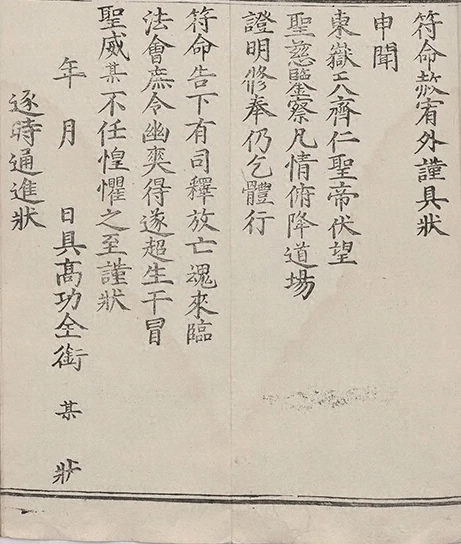 符命赦宥外謹具狀
申聞
東嶽天齊仁聖帝伏望
聖慈鑒察凡情俯降道場
證明修奉仍乞體行
符命告下有司釋放亡魂來臨
法會庶令幽爽得遂超生干冒
聖威某不任惶懼之至謹狀
年 月 日具高功全銜 某 狀
逐時通進狀